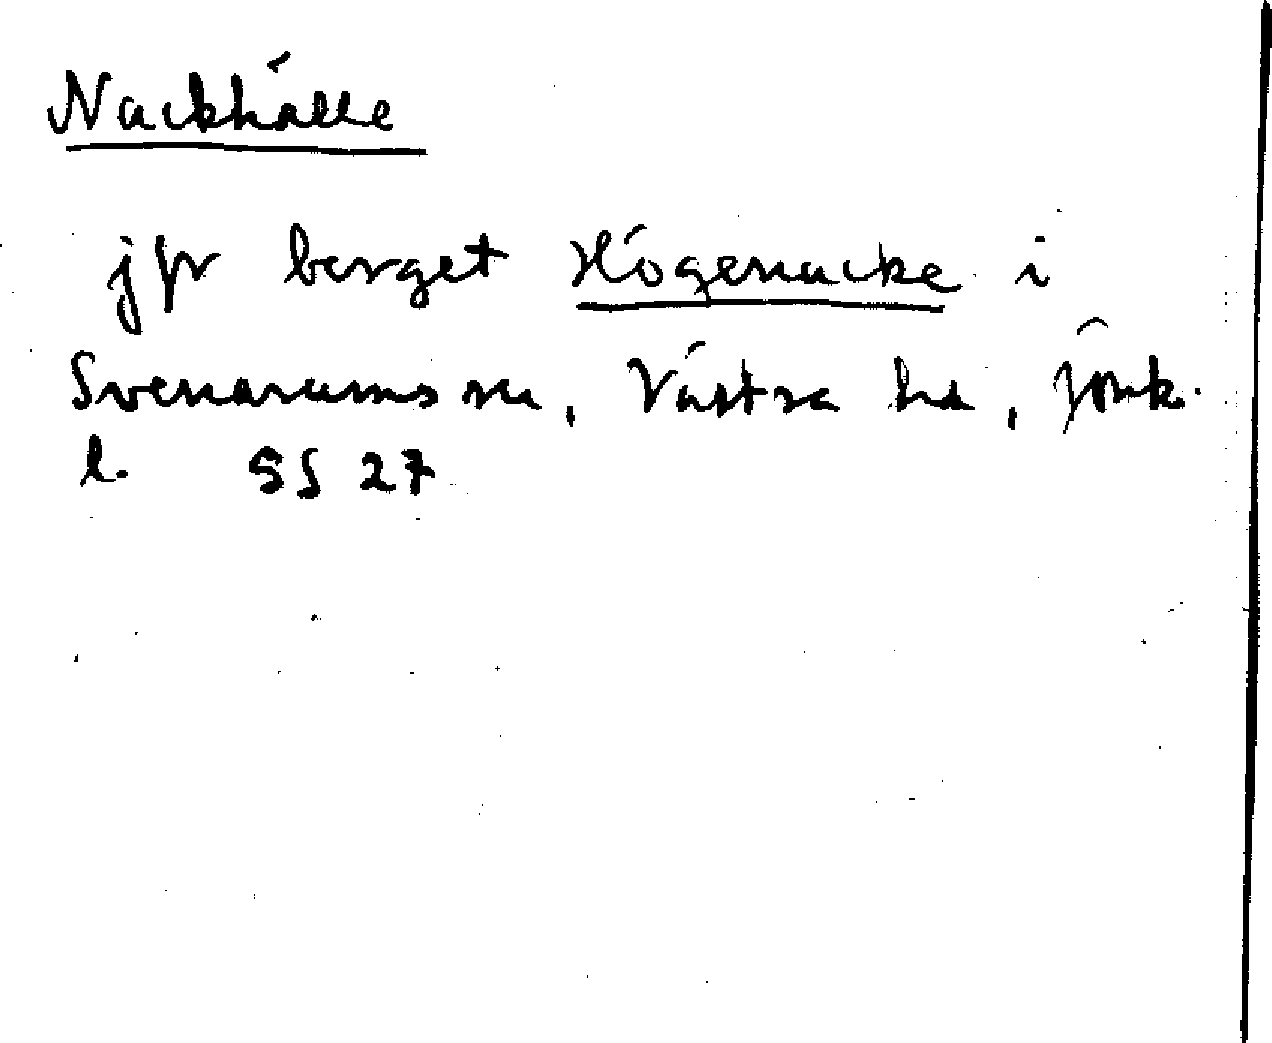 Nackhälle
jfr berget Högenacke i
Svenarums sn, Västra hd, Jönk.
l. SS 27